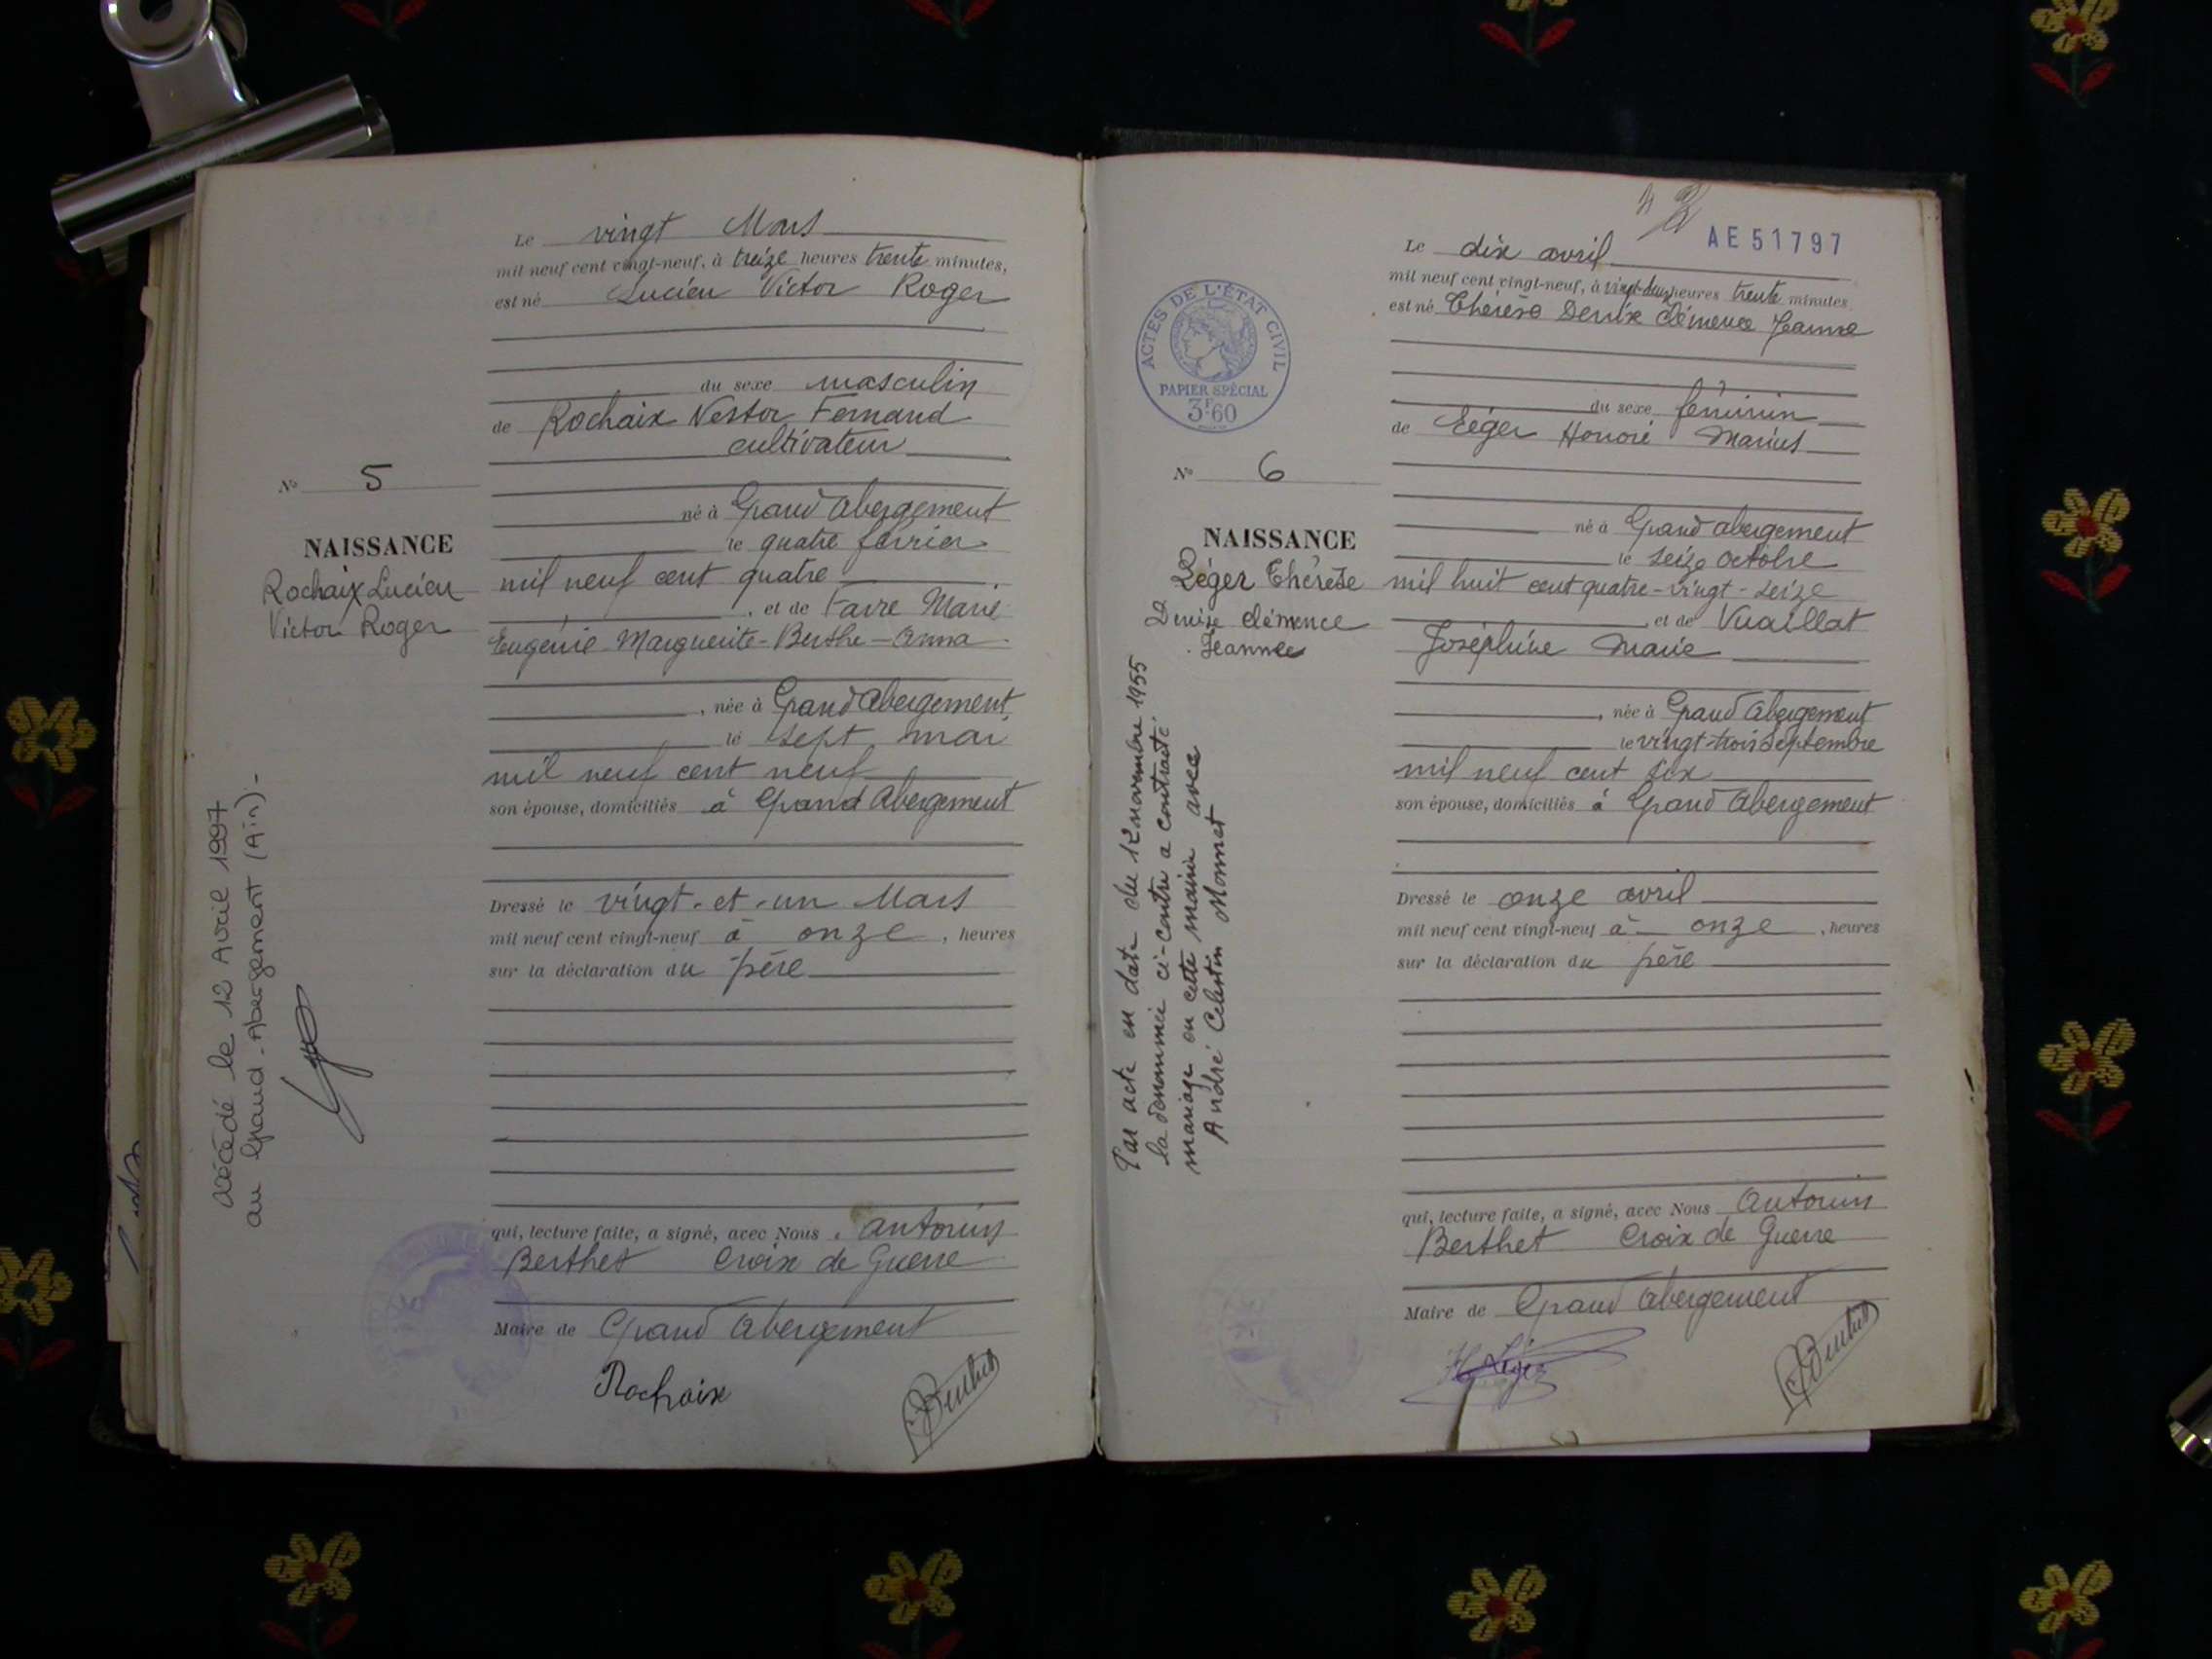 Le vingt Mars
mil neuf cent vingt-neuf, à treize heures trente minutes,
est né Lucien Victor Roger
du sexe masculin
de Rochaix Nestor Fernand
cultivateur
N° 5
né à Grand Abergement
NAISSANCE
le quatre février
Rochaix Lucien
Victor Roger
mil neuf cent quatre
, et de Favre Marie
Eugénie Marguerite-Berthe-Anna
, née à Grand Abergement,
le sept mai
mil neuf cent neuf
son épouse, domiciliés à Grand Abergement
Dressé le vingt-et-un Mars
mil neuf cent vingt-neuf à onze, heures
sur la déclaration du père
décédé le 12 Avril 1997
au Grand-Abergement (Ain).-
qui, lecture faite, a signé, avec Nous, Antonin
Berthet Croix de Guerre
Maire de Grand Abergement
Rochaix
Berthet
4
AE51797
Le dix avril
mil neuf cent vingt-neuf, à vingt-deux heures trente minutes
est né Thérèse Denise Clémence Jeanne
ACTES DE L'ÉTAT CIVIL
PAPIER SPÉCIAL
3F60
du sexe féminin
de Léger Honoré Marius
N° 6
né à Grand abergement
NAISSANCE
le seize octobre
Léger Thérèse
Denise Clémence
Jeanne
mil huit cent quatre-vingt-seize
, et de Vuaillat
Joséphine Marie
, née à Grand Abergement
le vingt-trois Septembre
mil neuf cent six
son épouse, domiciliés à Grand Abergement
Dressé le onze avril
mil neuf cent vingt-neuf à onze, heures
sur la déclaration du père
Par acte en date du 12 novembre 1955
la dénommée ci-contre a contracté
mariage en cette mairie avec
André Célestin Monnet
qui, lecture faite, a signé, avec Nous Antonin
Berthet Croix de Guerre
Maire de Grand Abergement
H Léger
Berthet